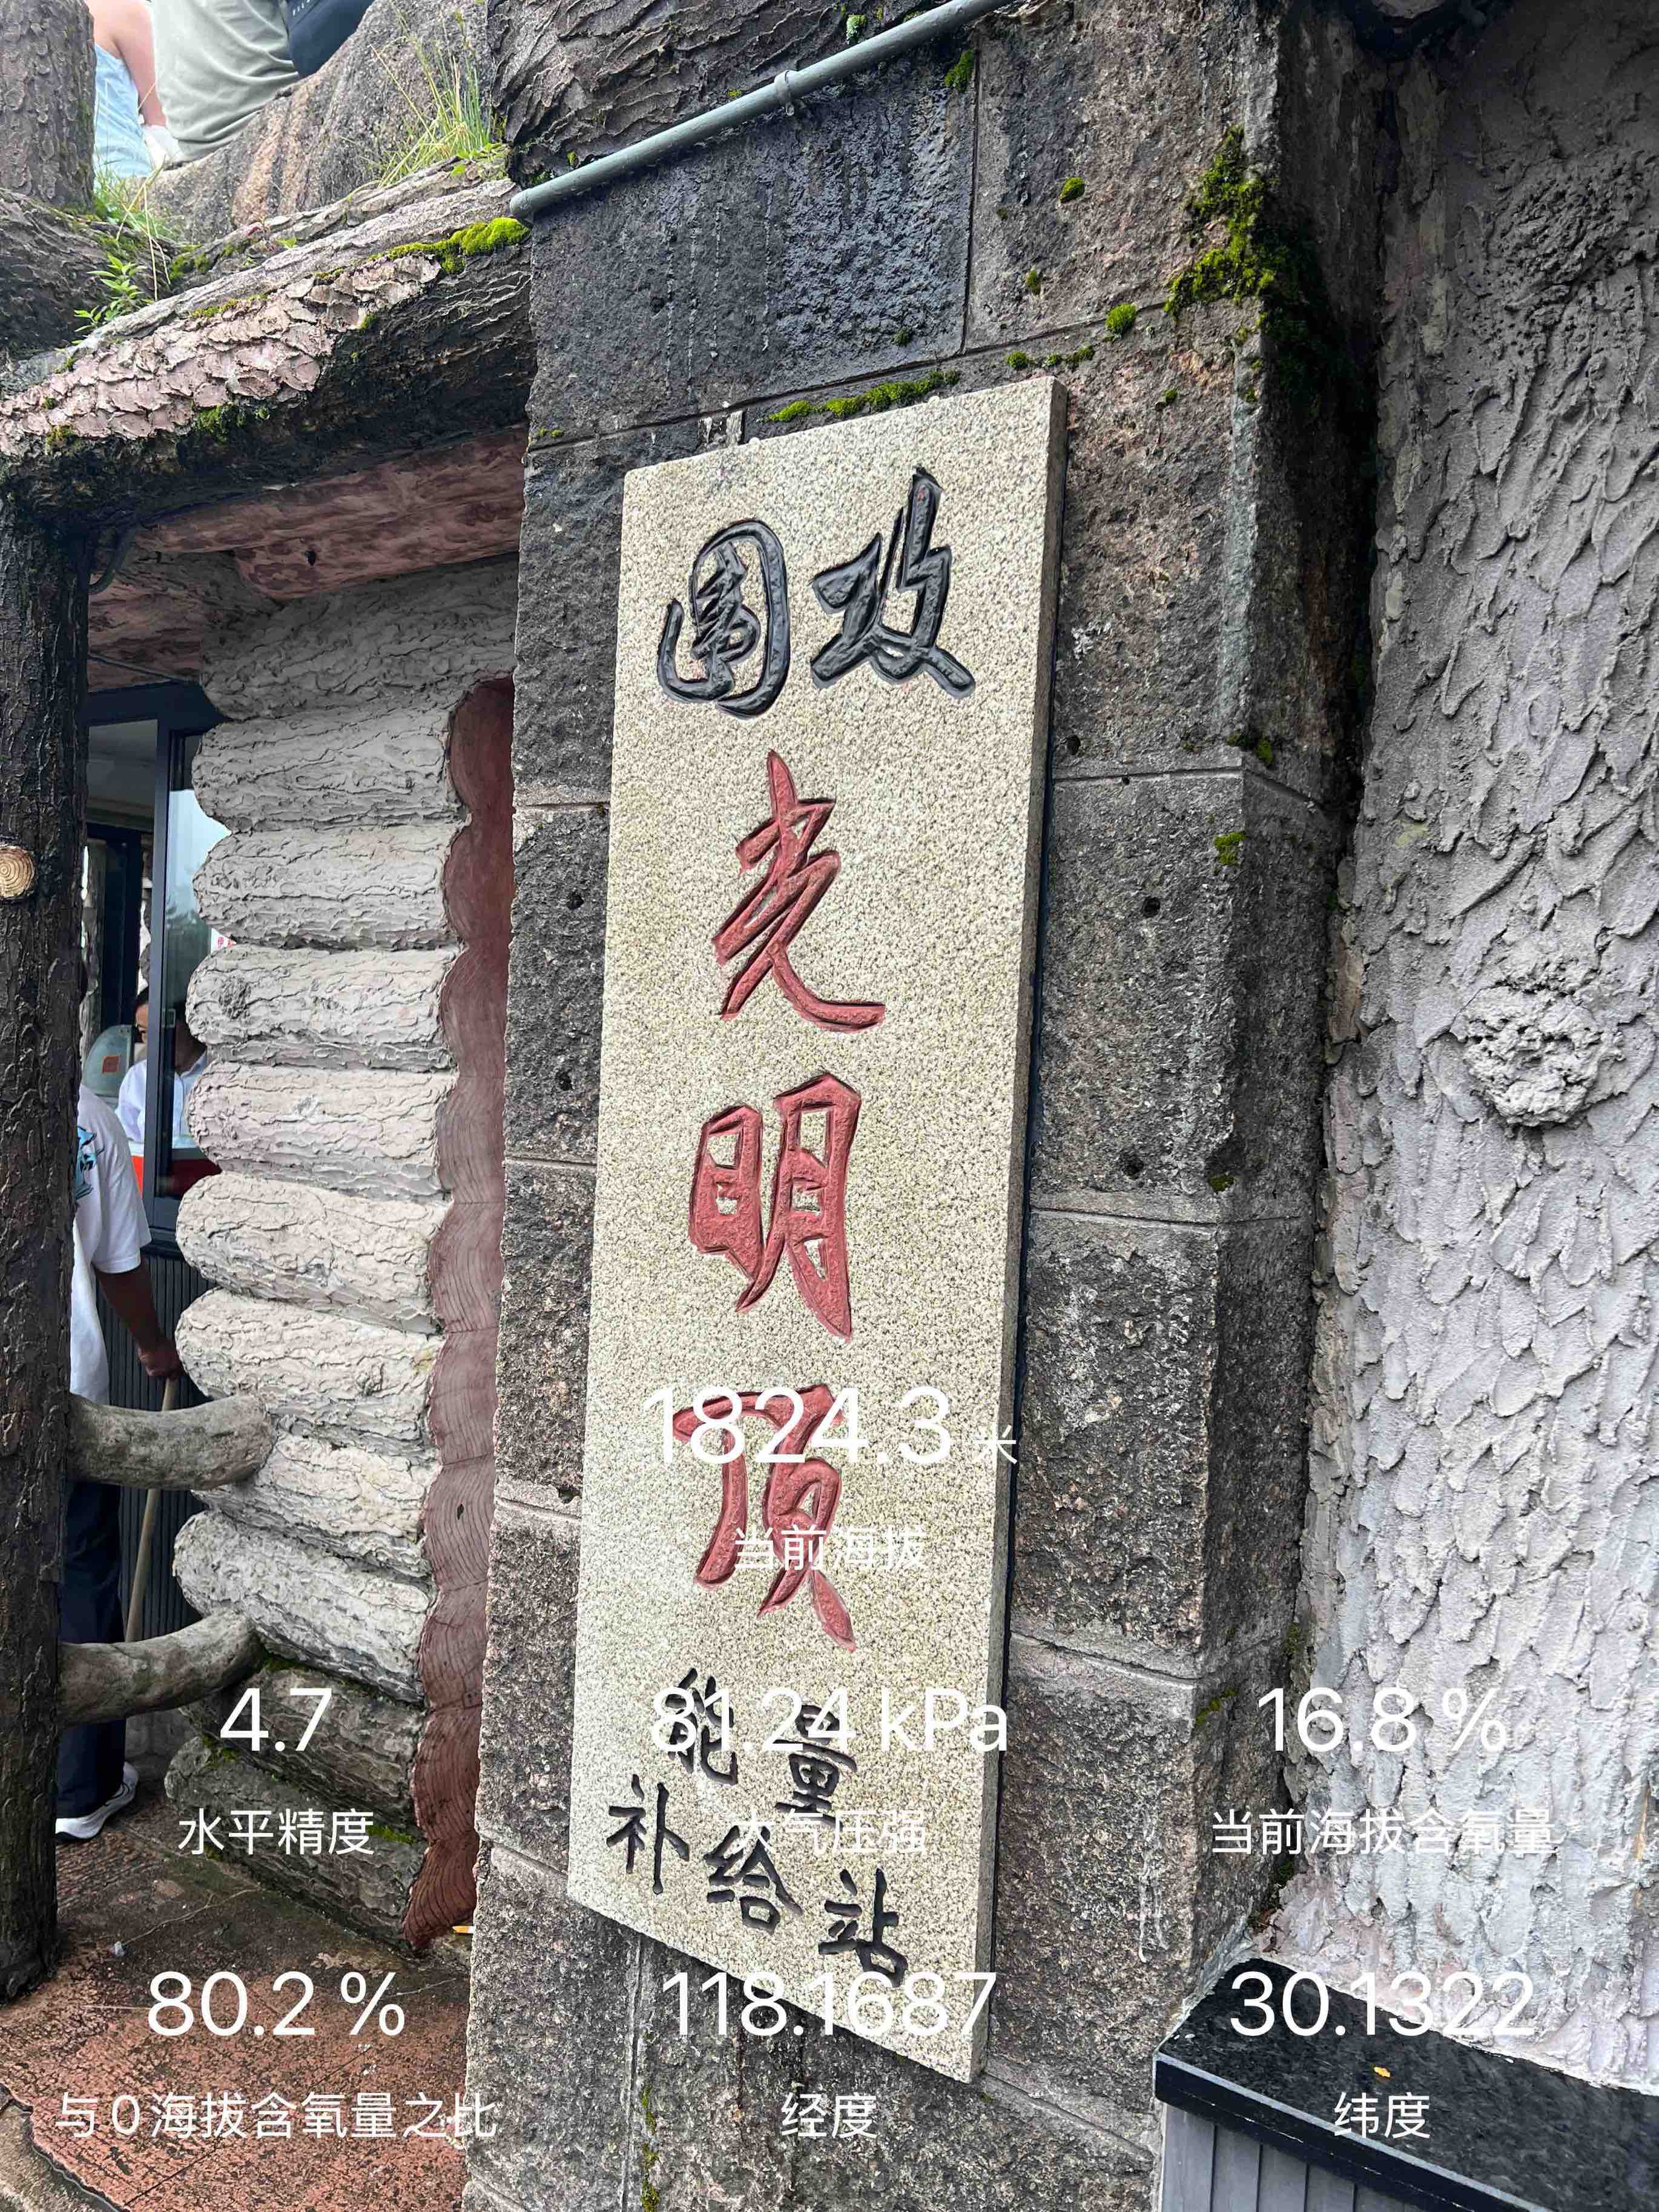 围攻
光
明
顶
能量
补给站
1824.3 米
当前海拔
4.7
水平精度
81.24 kPa
大气压强
16.8 %
当前海拔含氧量
80.2 %
与0海拔含氧量之比
118.1687
经度
30.1322
纬度